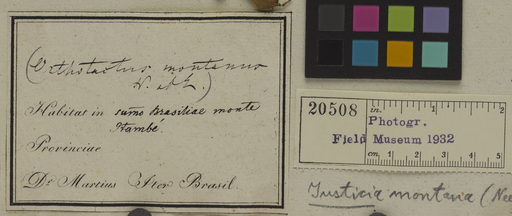 (Orthotactus montanus
N. ab E.)
Habitat in sum̄o Brasiliae monte
Itambé.
Provinciae
Dr Martius Iter Brasil.
20508
in. 1 2
Photogr.
Field Museum 1932
cm. 1 2 3 4 5
Justicia montana (Nees